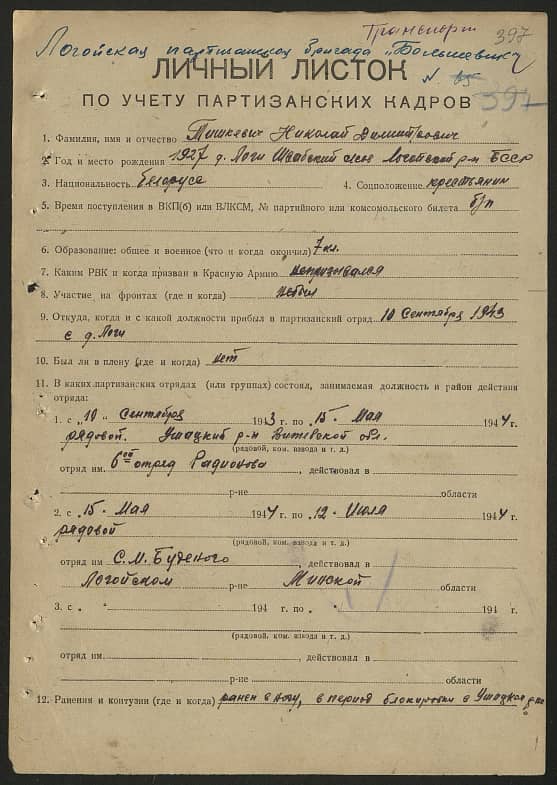 Транспорт 397
Логойская партизанская бригада „Большевик"
ЛИЧНЫЙ ЛИСТОК
N 65
ПО УЧЕТУ ПАРТИЗАНСКИХ КАДРОВ 397
1. Фамилия, имя и отчество Тишкевич Николай Димитрович
2. Год и место рождения 1927 д. Логи Швабский с/сов Логойский р-н БССР
3. Национальность белорусс 4. Соцположение крестьянин
5. Время поступления в ВКП(б) или ВЛКСМ, № партийного или комсомольского билета б/п
6. Образование: общее и военное (что и когда окончил) 7 кл.
7. Каким РВК и когда призван в Красную Армию непризывался
8. Участие на фронтах (где и когда) небыл
9. Откуда, когда и с какой должности прибыл в партизанский отряд 10 Сентября 1943
с д. Логи
10. Был ли в плену (где и когда) нет
11. В каких партизанских отрядах (или группах) состоял, занимаемая должность и район действия
отряда:
1. с „10" Сентября 1943 г. по „15" Мая 1944 г.
рядовой. Ушацкий р-н Витебской обл.
(рядовой, ком. взвода и т. д.)
отряд им. 6ой отряд Радионова, действовал в
р-не области
2. с „15" Мая 1944 г. по „12" Июля 1944 г.
рядовой
(рядовой, ком. взвода и т. д.)
отряд им. С. М. Буденого, действовал в
Логойском р-не Минской области
3. с „ " 194 г. по „ " 194 г.
(рядовой, ком. взвода и т. д.)
отряд им. , действовал в
р-не области
12. Ранения и контузии (где и когда) ранен в ногу, в период блокировки в Ушацком р-не